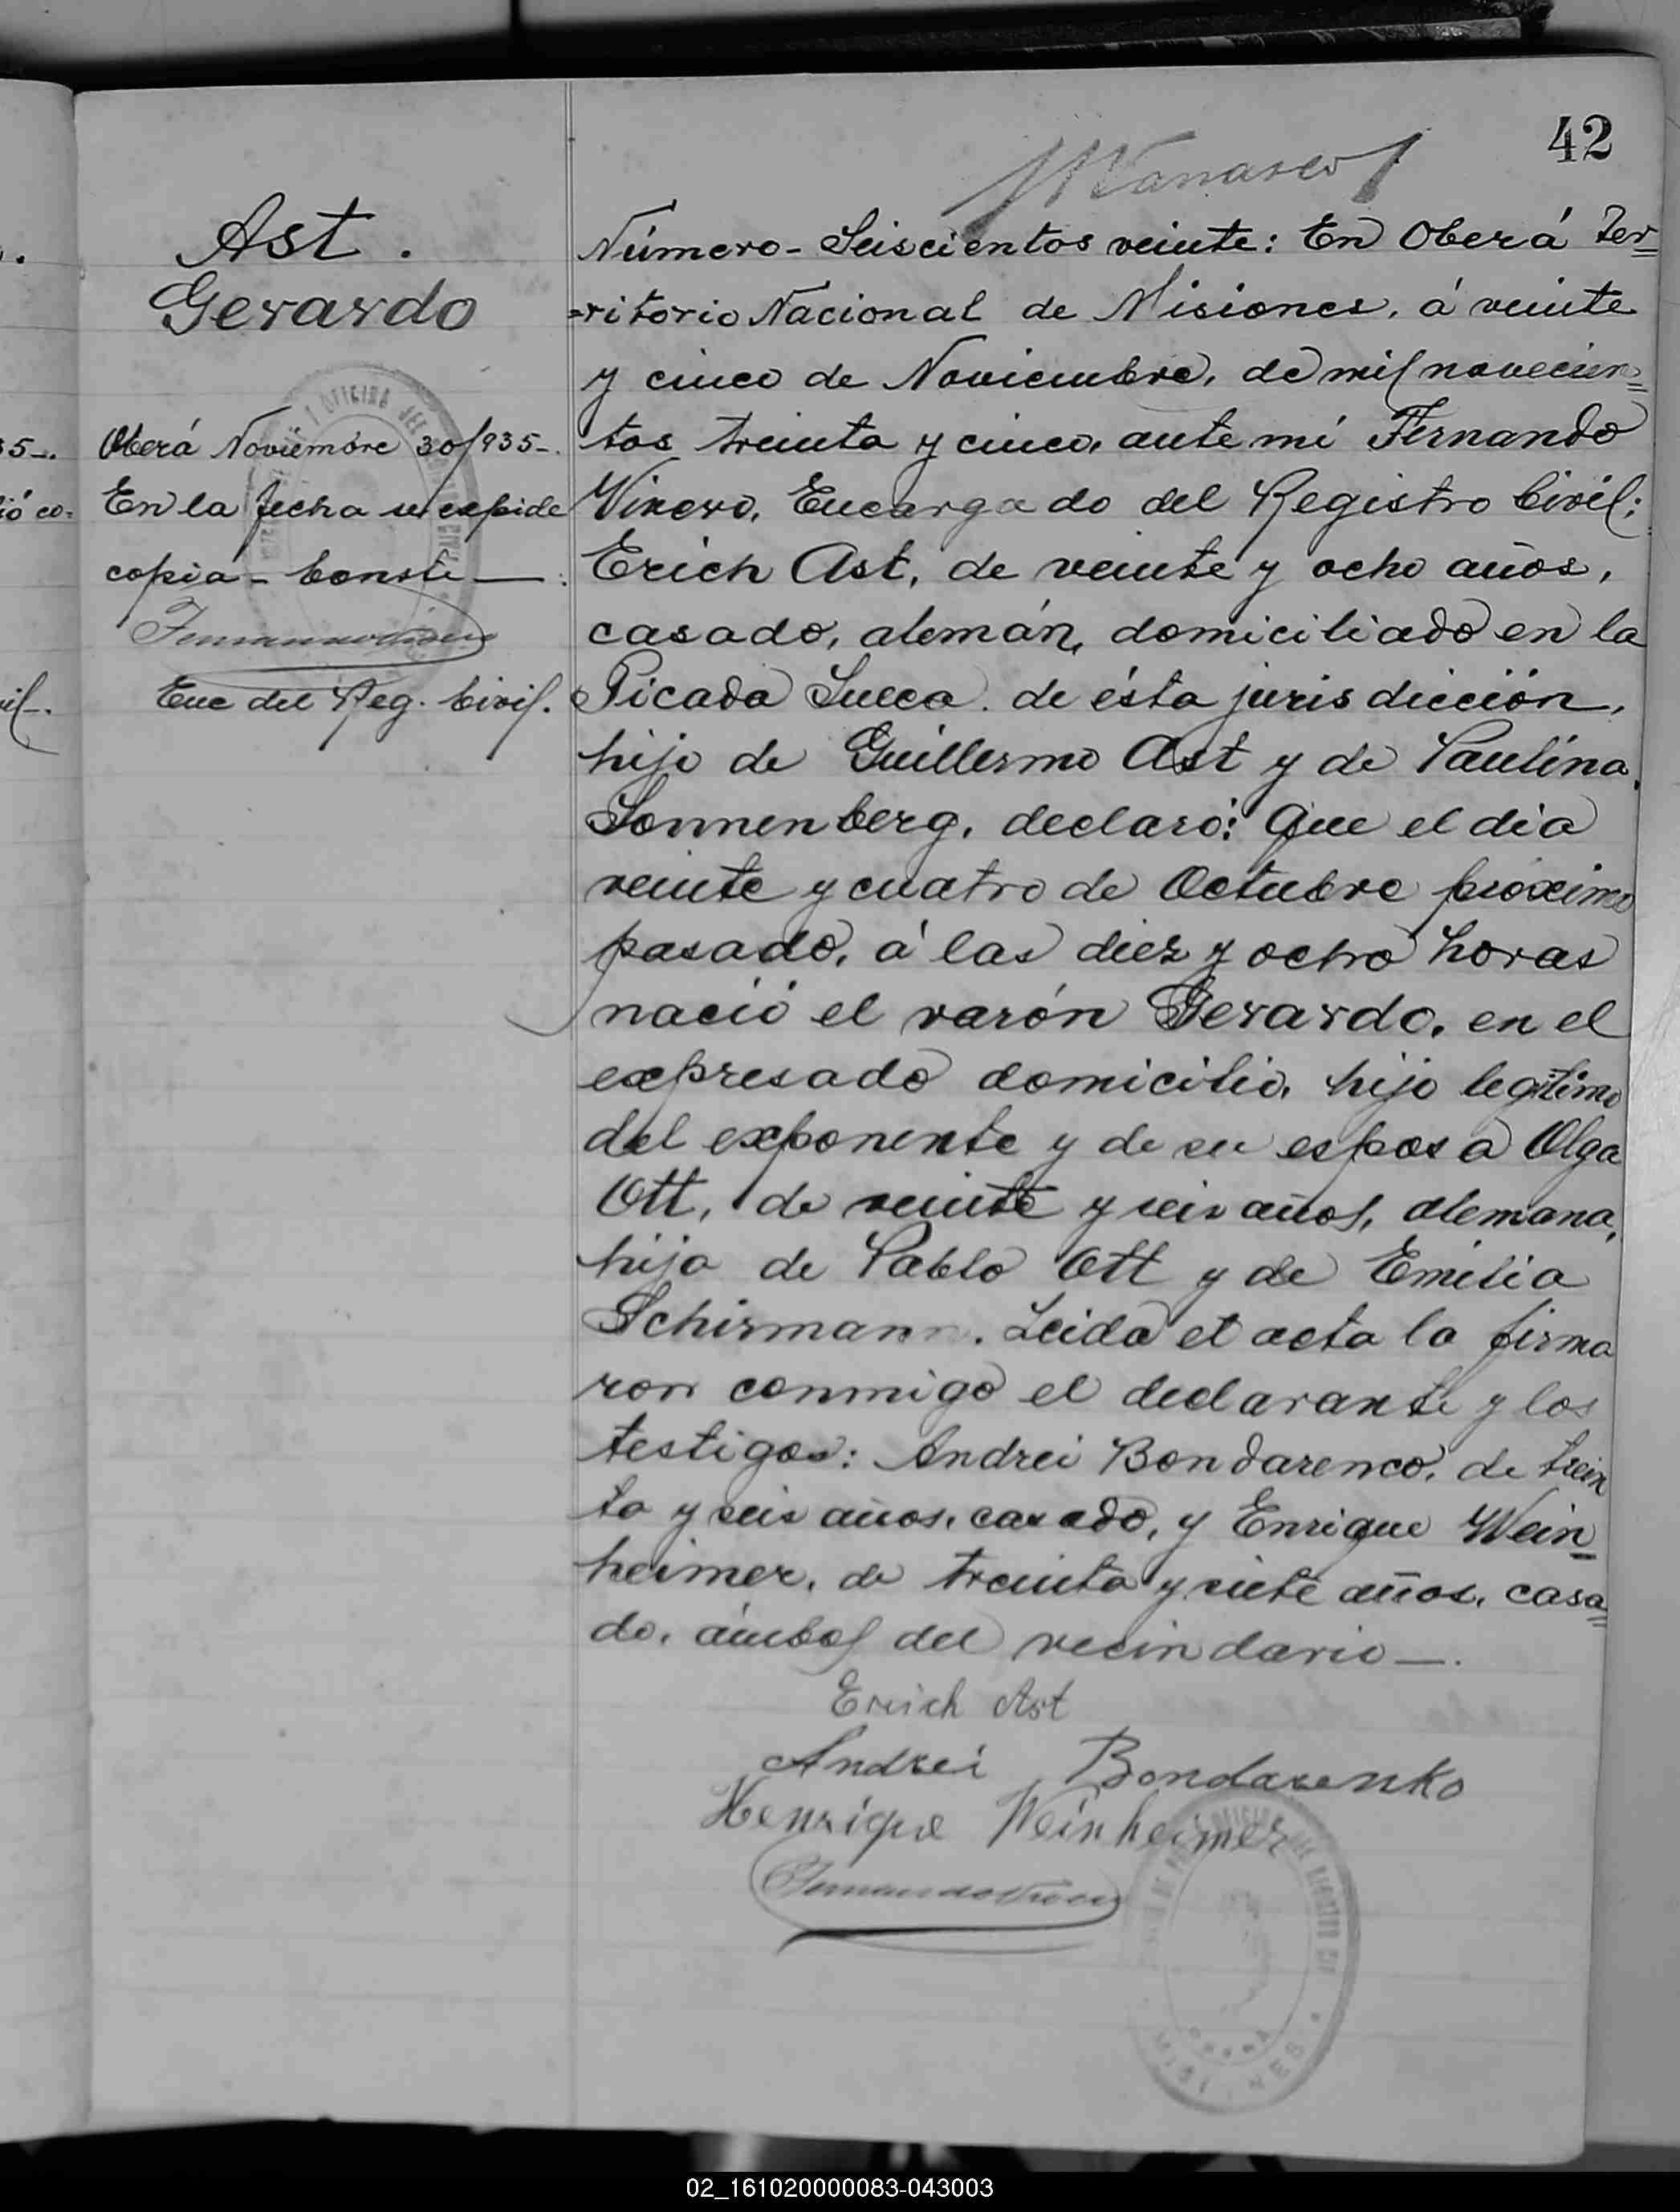 42
Ast.
Gerardo
Oberá Noviembre 30/935-.
En la fecha se expide
copia - Conste —
Enc del Reg. Civil.
Número - Seiscientos veinte: En Oberá Ter=
=ritorio Nacional de Misiones, á veinte
y cinco de Noviembre, de mil novecien=
tos treinta y cinco, ante mí Fernando
Encargado del Registro Civil;
Erich Ast, de veinte y ocho años,
casado, alemán, domiciliado en la
Picada Sueca de ésta jurisdicción,
hijo de Guillermo Ast y de Paulina
Sonnenberg, declaró: Que el día
veinte y cuatro de Octubre próximo
pasado, á las diez y ocho horas
nació el varón Gerardo, en el
expresado domicilio, hijo legítimo
del exponente y de su esposa Olga
Ott, de veinte y seis años, alemana,
hija de Pablo Ott y de Emilia
Schirmann. Leida el acta la firma
ron conmigo el declarante y los
testigos: Andrei Bondarenco, de trein
ta y seis años, casado, y Enrique Wein=
heimer, de treinta y siete años, casa=
do, ámbos del vecindario —.
Erich Ast
Andrei Bondarenko
Henrique Weinheimer
02_161020000083-043003